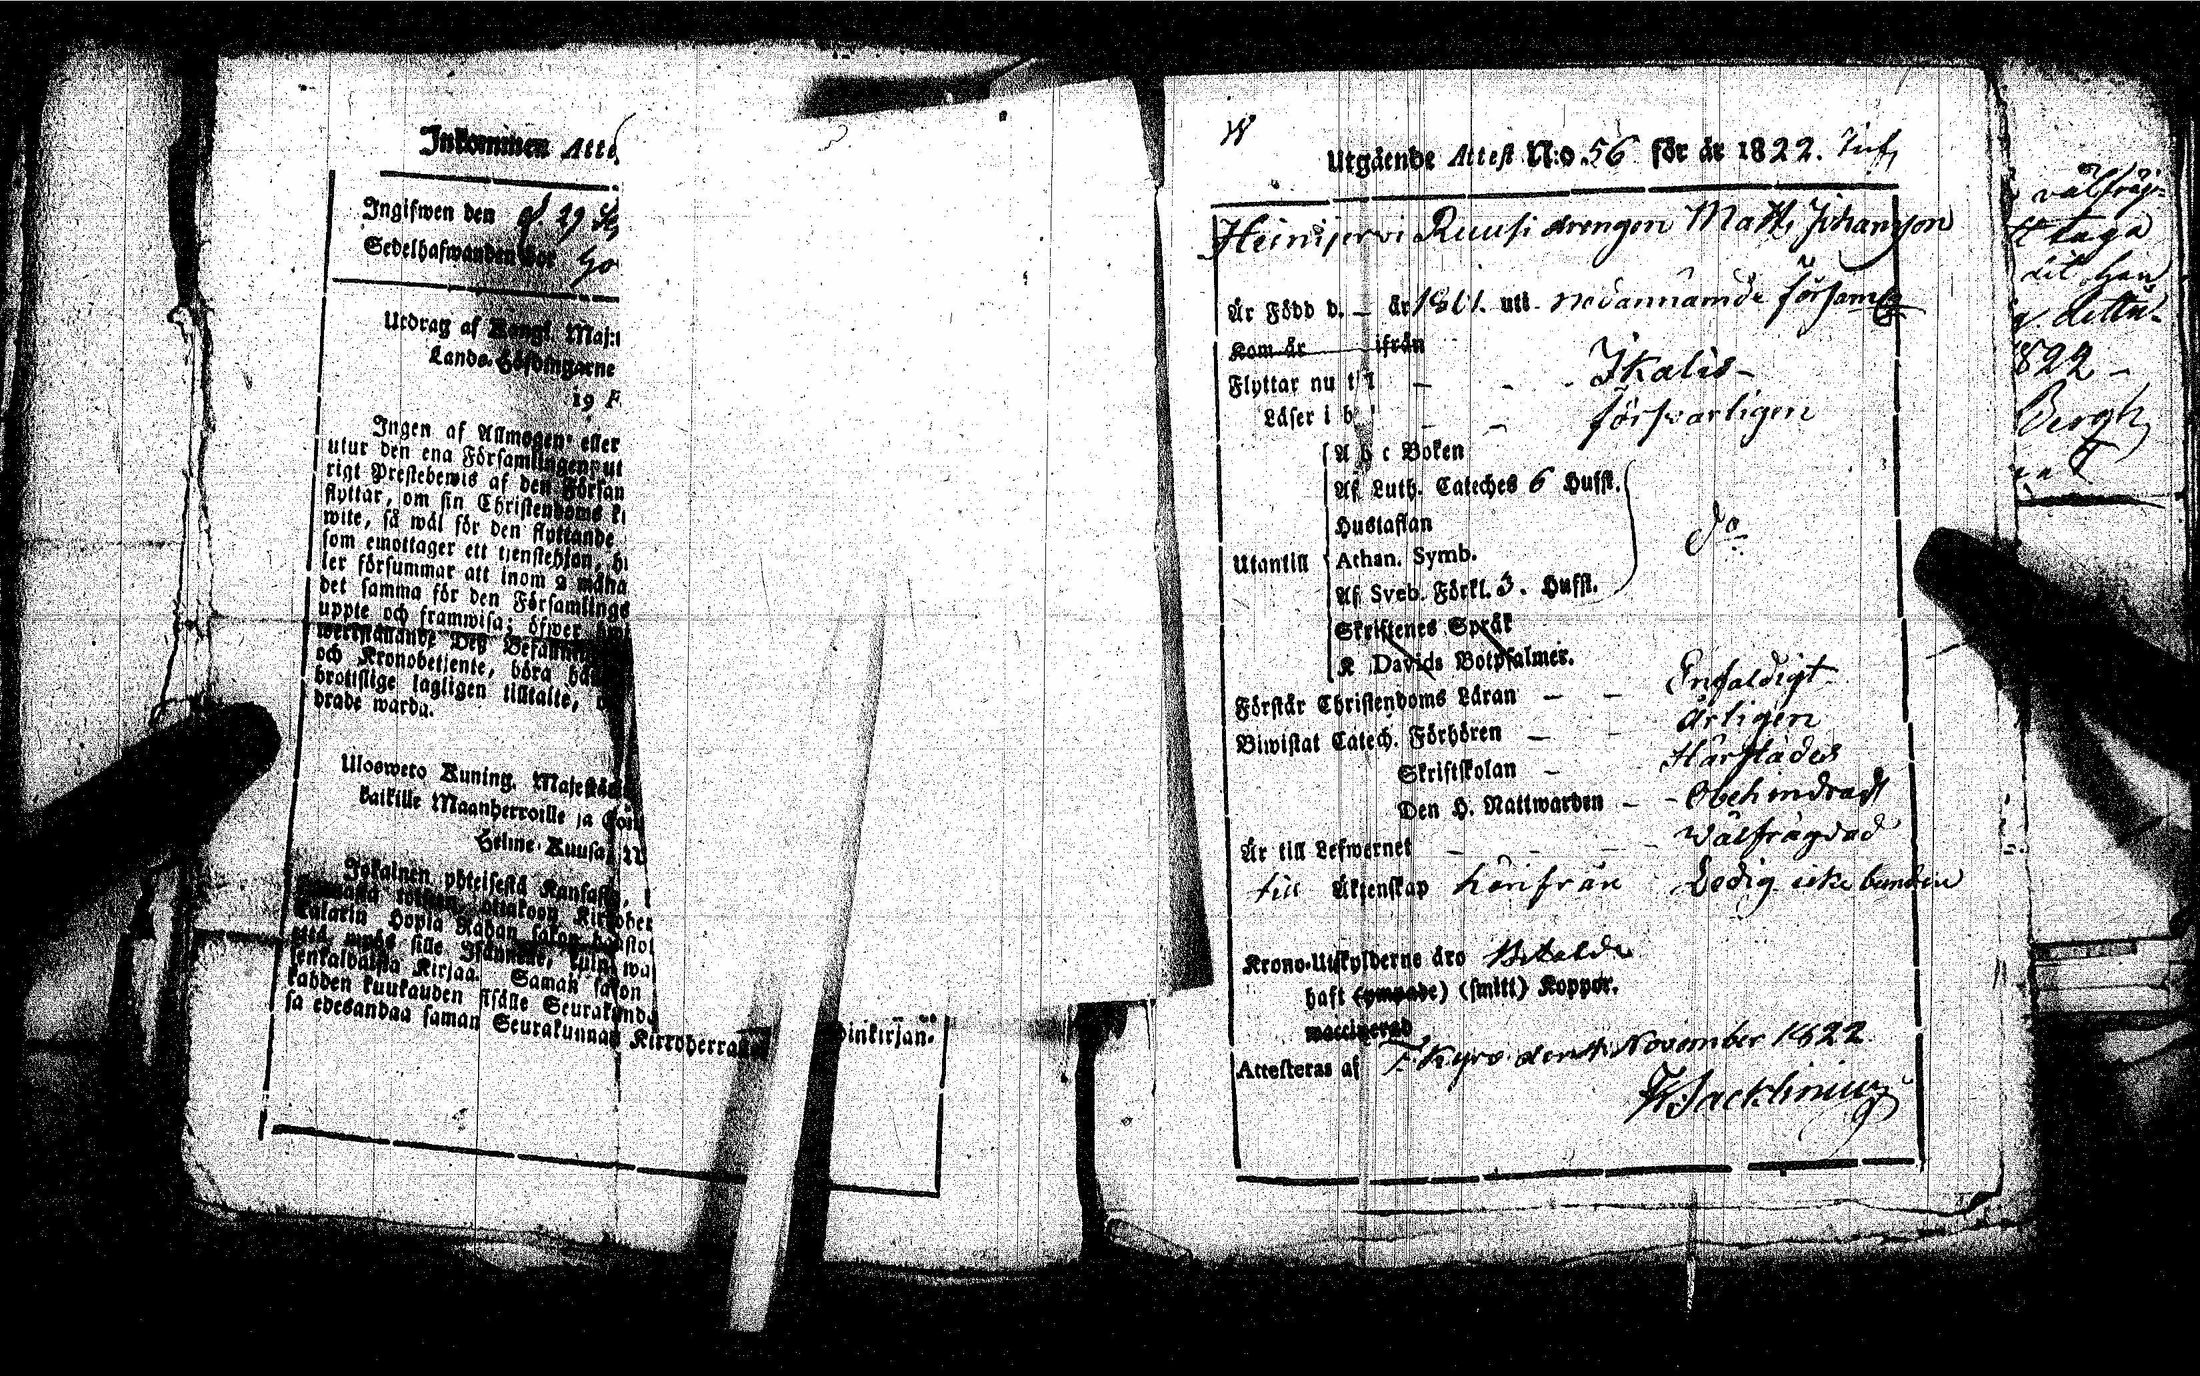 Inkommen Atte
Ingifwen den d. 29
Sedelhafwanden bor
Utdrag af Kongl. Maj:t
Lands-Höfdingarne
19 F
Ingen af Allmogen eller
utur den ena Församlingen ut
rigt Prestebewis af den Försam
flyttar, om sin Christendoms k
wite, så wäl för den flyttande
som emottager ett tjenstehjon, h
ler försummar att inom 2 måna
det samma för den Församlings
uppte och framwisa; öfwer
werkställande Des Befallnings
och Kronobetjente, böra
brottslige lagligen tilltalte,
drade warda.
Ulosweto Kuning. Majestä
kaikille Maanherroille ja
Helme-Kuusa
Jokainen yhteisestä Kansasta,
Kirkoher
Kalarin Hopia Rahan sakon
senkaldaista Kirjaa. Saman sakon
kahden kuukauden sisälle Seurakunda
sa edesandaa saman Seurakunnan Kirkoherralle
inkirjan-
Utgående Attest N:o 56 för år 1822.
Heinijervi Ruusi drengen Matts Johansson
Är Född d. – år 1801. uti nedannämde församlg
Kom år ifrån
Flyttar nu till – – - Ikalis –
Läser i bok – – försvarligen
A b c Boken
Af Luth. Cateches 6 Hufst.
Hustaflan
Utantill Athan. Symb. do
Af Sveb. Förkl. 3. Hufst.
Skriftenes Språk
K Davids Botpsalmer.
Förstår Christendoms Läran – – Enfaldigt
Biwistat Catech. Förhören – – årligen
Skriftskolan – Härstädes
Den H. Nattwarden – - Obehindradt
Är till Lefwernet – – – Wälfrägdad
till Äktenskap härifrån Ledig icke bunden
Krono-Utskylderne äro Betalde
haft (ympade) (smitt) Koppor.
waccinerad
Attesteras af T. Kyro den November 1822
wälfräg-
taga
til han
822 –
Bergh